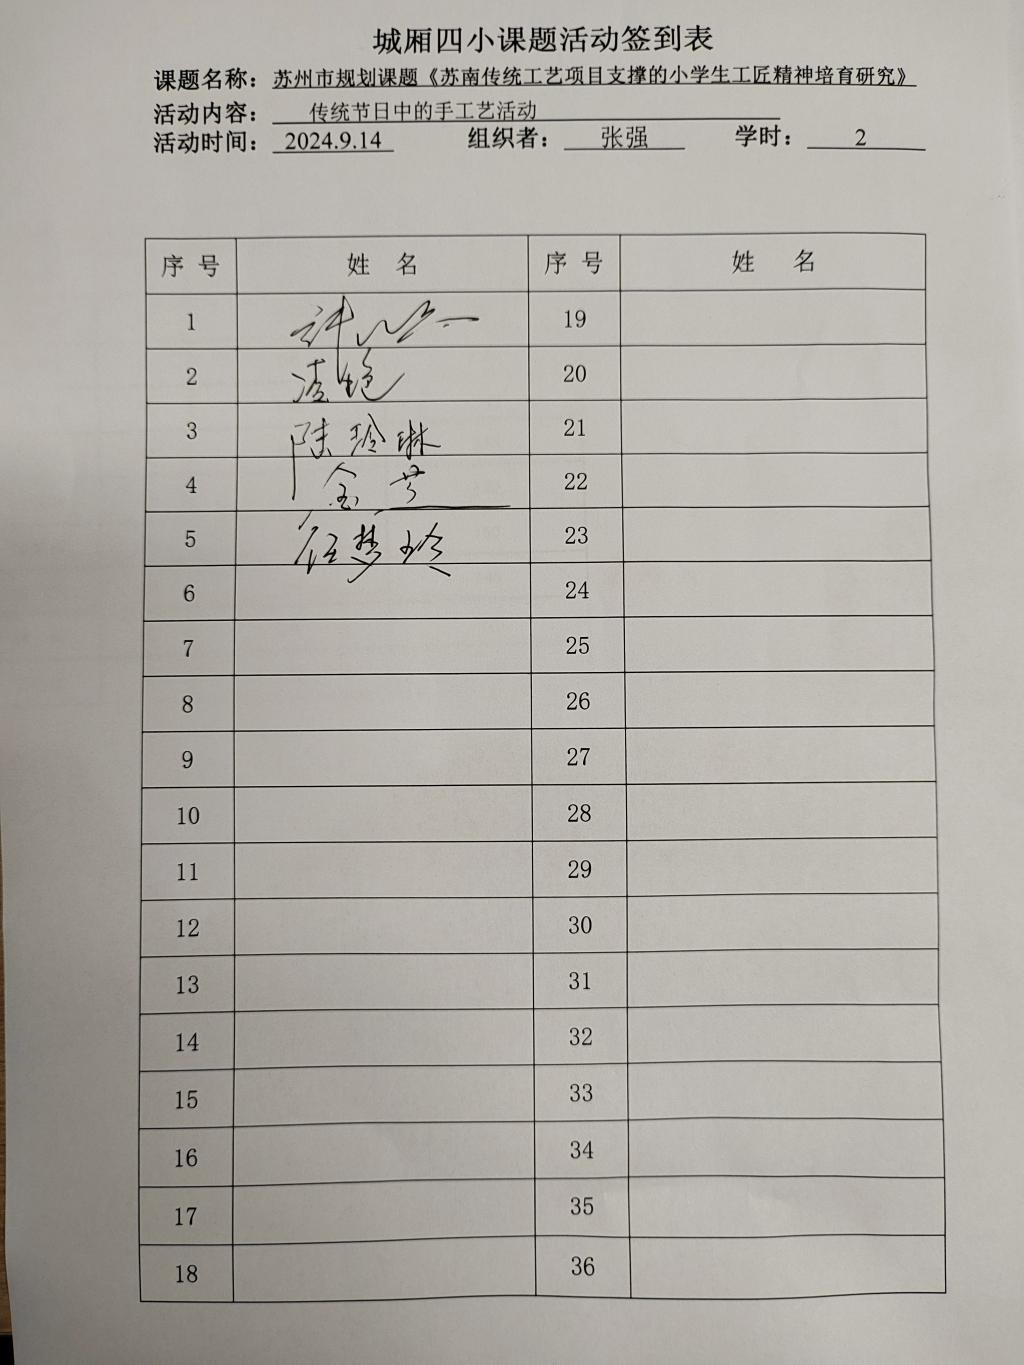 城厢四小课题活动签到表
课题名称：苏州市规划课题《苏南传统工艺项目支撑的小学生工匠精神培育研究》
活动内容： 传统节日中的手工艺活动
活动时间： 2024.9.14 组织者： 张强 学时： 2
序 号 姓 名 序 号 姓 名
1 19
2 20
3 陆玲琳 21
4 金芳 22
5 任梦玲 23
6 24
7 25
8 26
9 27
10 28
11 29
12 30
13 31
14 32
15 33
16 34
17 35
18 36